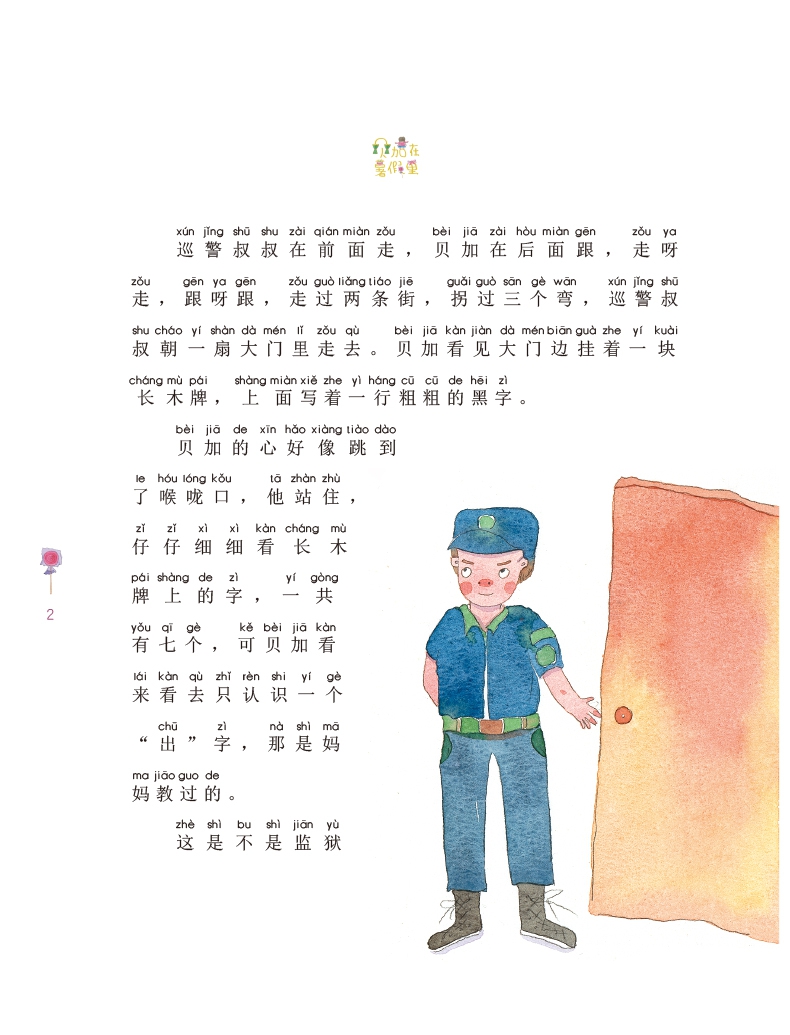 贝加在
暑假里
xún jǐng shū shu zài qián miàn zǒu bèi jiā zài hòu miàn gēn zǒu ya
巡警叔叔在前面走，贝加在后面跟，走呀
zǒu gēn ya gēn zǒu guò liǎng tiáo jiē guǎi guò sān gè wān xún jǐng shū
走，跟呀跟，走过两条街，拐过三个弯，巡警叔
shu cháo yí shàn dà mén lǐ zǒu qù bèi jiā kàn jiàn dà mén biān guà zhe yí kuài
叔朝一扇大门里走去。贝加看见大门边挂着一块
cháng mù pái shàng miàn xiě zhe yì háng cū cū de hēi zì
长木牌，上面写着一行粗粗的黑字。
bèi jiā de xīn hǎo xiàng tiào dào
贝加的心好像跳到
le hóu lóng kǒu tā zhàn zhù
了喉咙口，他站住，
zǐ zǐ xì xì kàn cháng mù
仔仔细细看长木
pái shàng de zì yí gòng
牌上的字，一共
yǒu qī gè kě bèi jiā kàn
有七个，可贝加看
lái kàn qù zhǐ rèn shi yí gè
来看去只认识一个
chū zì nà shì mā
“出”字，那是妈
ma jiāo guo de
妈教过的。
zhè shì bu shì jiān yù
这是不是监狱
2